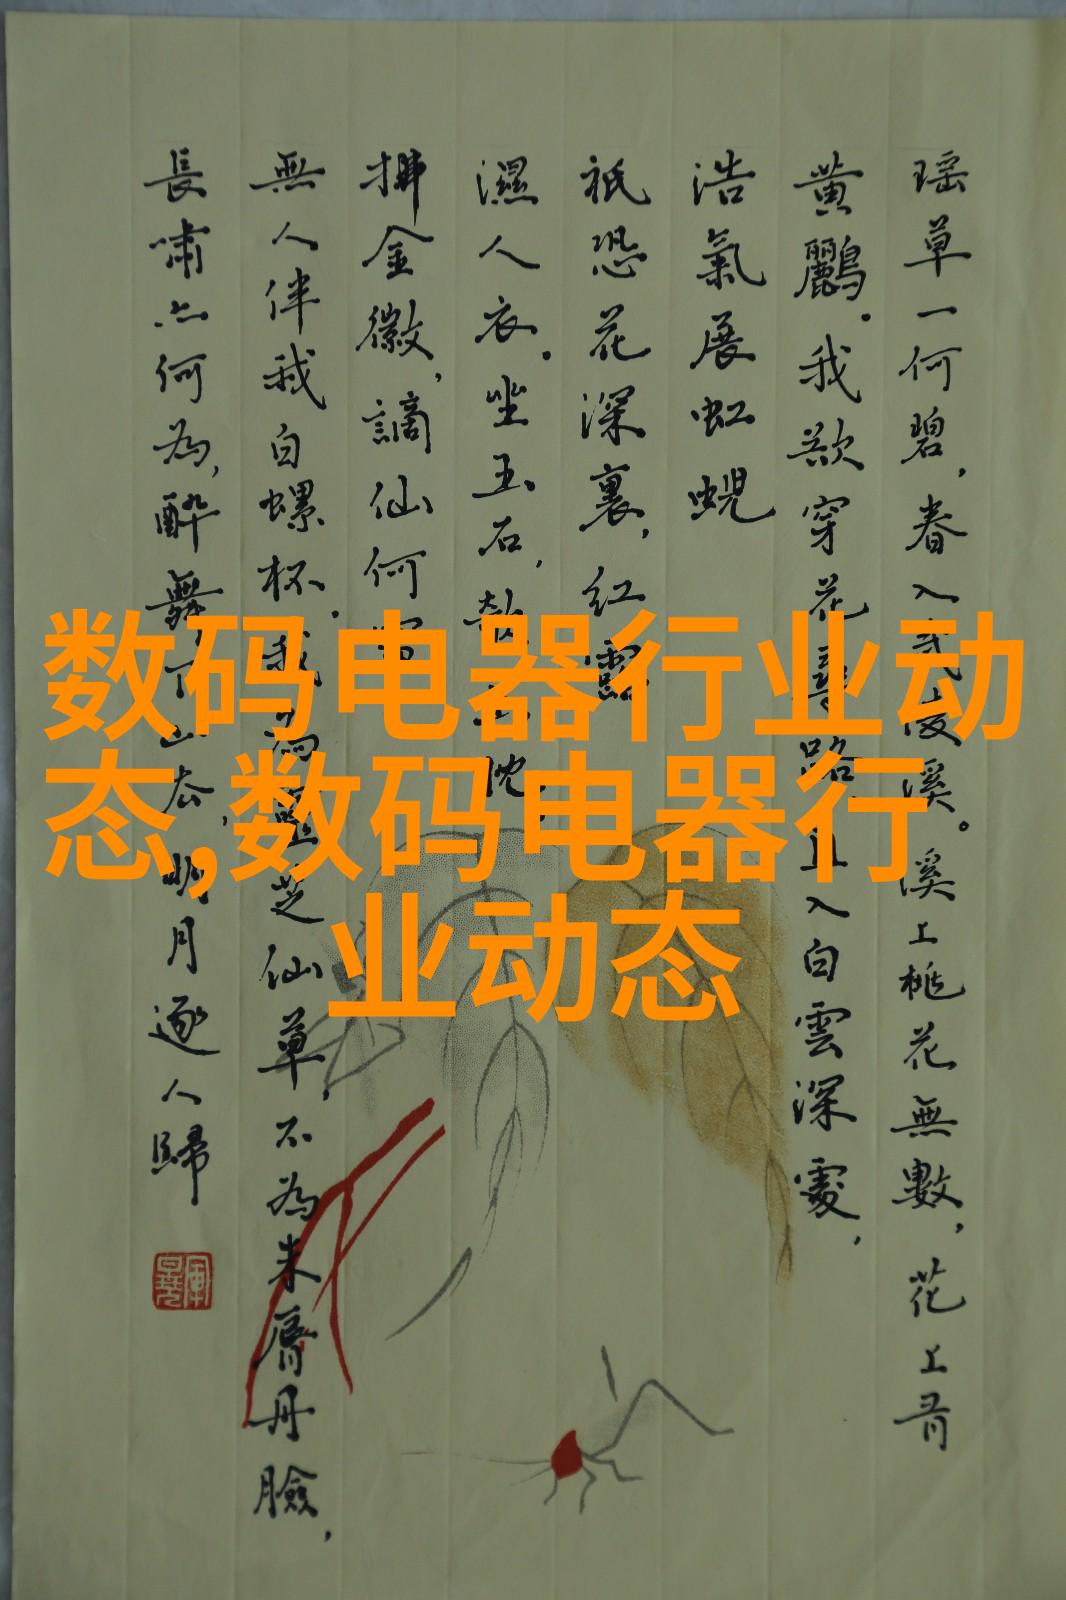 数码电器行业动
态,数码电器行
业动态
瑶草一何碧，春入武陵溪。溪上桃花無數，花上有
黄鸝。我欲穿花尋路，直入白雲深處，
浩氣展虹蜺
祇恐花深裏，紅露
濕人衣。坐玉石，欹玉枕
拂金徽，謫仙何處
無人伴我白螺杯。我為靈芝仙草，不為朱唇丹臉，
長嘯亦何為，醉舞下山去，明月逐人歸